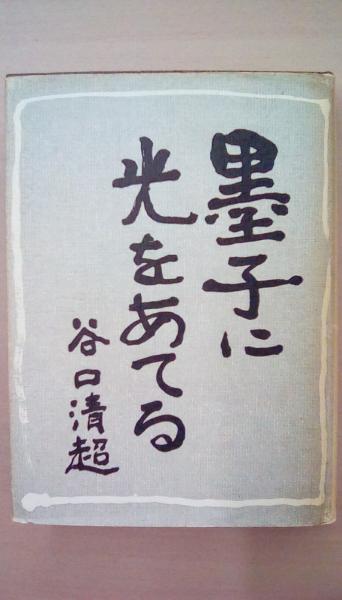 墨子に
光をあてる
谷口清超